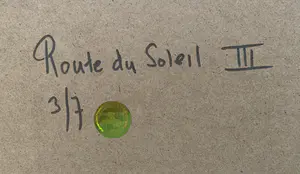 Route du Soleil III
3/7